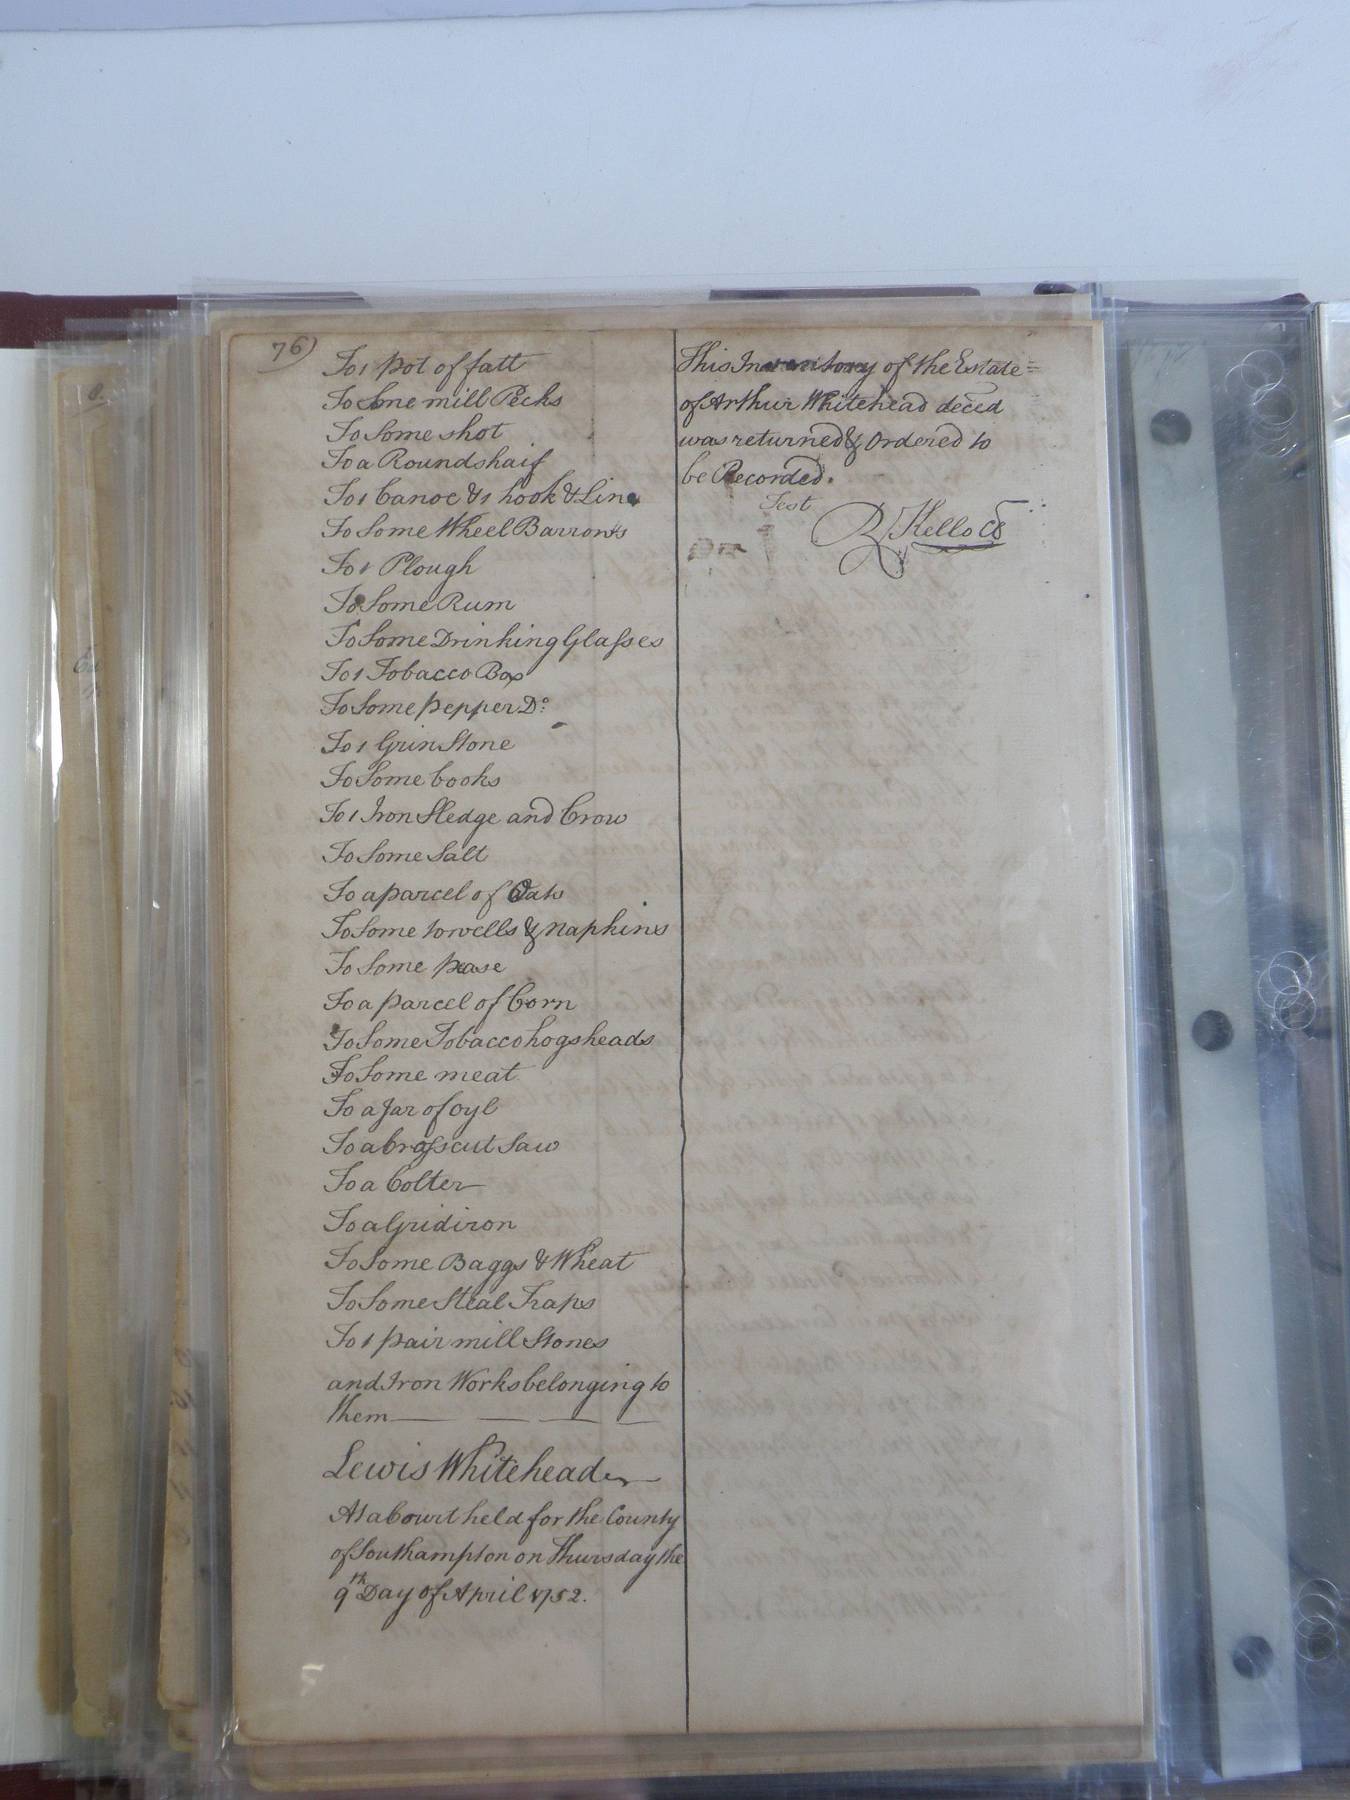 76)
To 1 pot of fatt
To Some mill Pecks
To Some shot
To a Roundshaif
To 1 Canoe & 1 hook & Line
To Some Wheel Barrows
To 1 Plough
To Some Rum
To Some Drinking Glasses
To 1 Tobacco Box
To Some pepper Do:
To 1 Grin Stone
To Some books
To 1 Iron Sledge and Crow
To Some Salt
To a parcel of Oats
To Some towells & Napkins
To Some pease
To a parcel of Corn
To Some Tobacco hogsheads
To Some meat
To a Jar of oyl
To a Crosscut Saw
To a Colter
To a Gridiron
To Some Baggs & Wheat
To Some Steal Traps
To 1 pair mill Stones
and Iron Works belonging to
them
Lewis Whitehead
At a Court held for the County
of Southampton on Thursday the
9th Day of April 1752.
This Inventory of the Estate
of Arthur Whitehead deced
was returned & Ordered to
be Recorded.
Test
R Kello CC